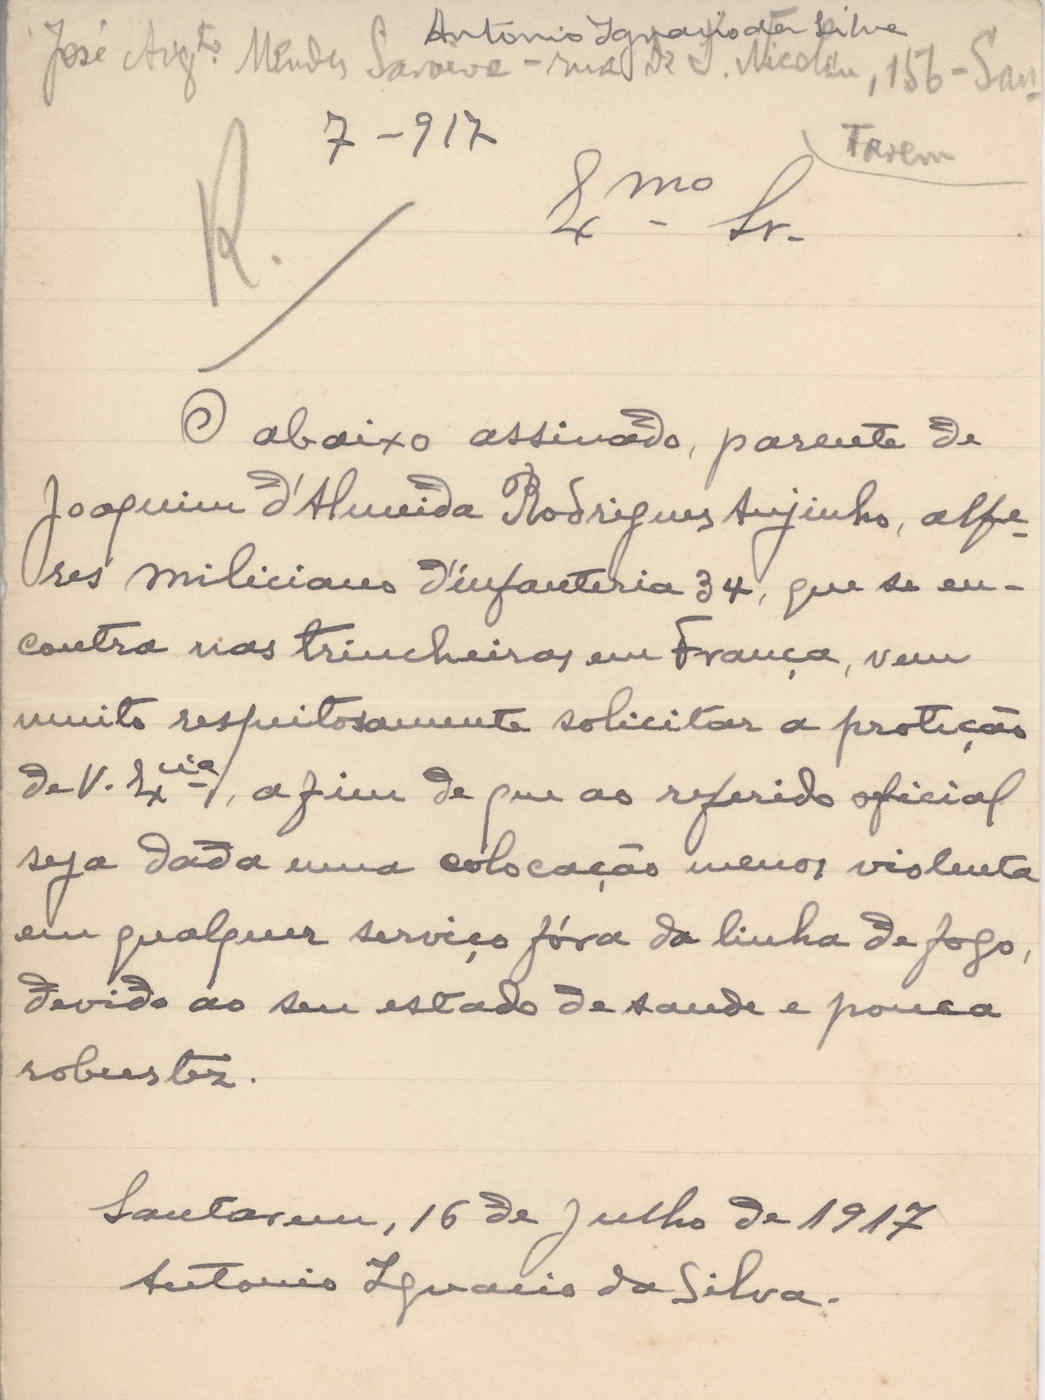 Antonio Ignacio da Silva
José Augto. Mendes - rua de S. Nicolau, 156 - San-
tarem
7 - 917
R.
Exmo Sr.
O abaixo assinado, parente de
Joaquim d'Almeida Rodrigues Anjinho, alfe-
res miliciano d'infanteria 34, que se en-
contra nas trincheiras em França, vem
muito respeitosamente solicitar a proteção
de V. Excia, a fim de que ao referido oficial
seja dada uma colocação menos violenta
em qualquer serviço fóra da linha de fogo,
devido ao seu estado de saude e pouca
robustez.
Santarem, 16 de Julho de 1917
Antonio Ignacio da Silva.